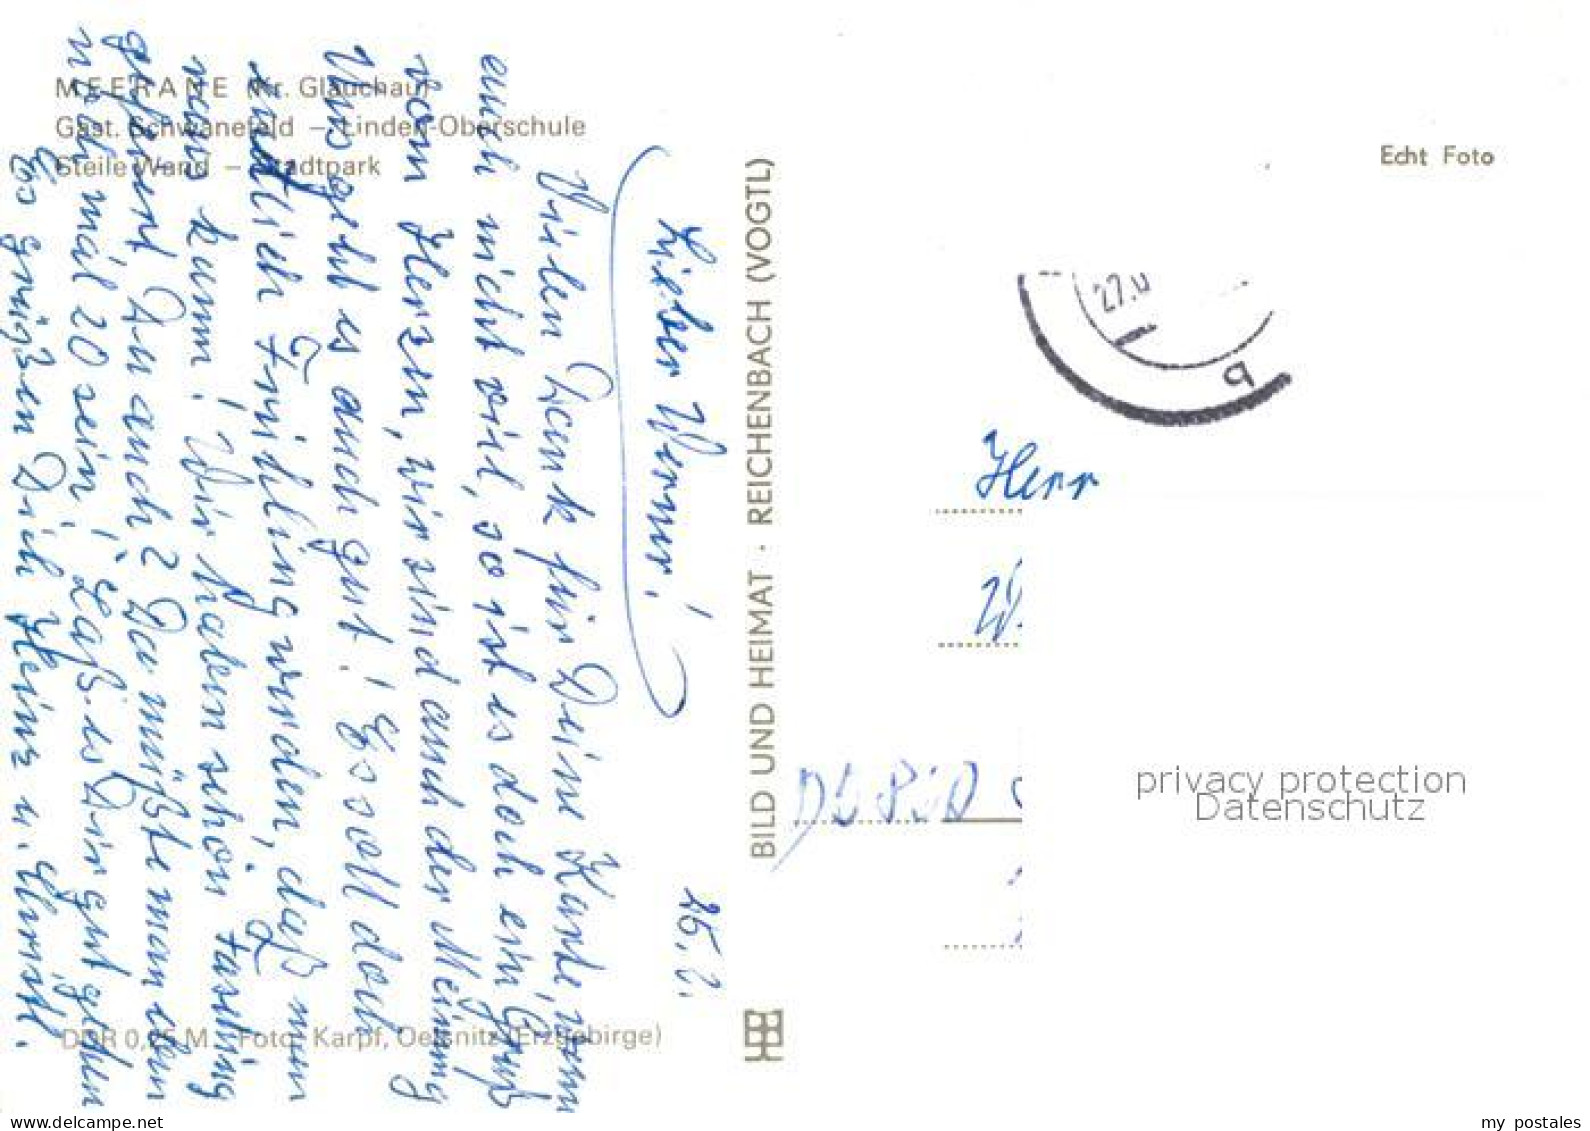 MEERANE (Kr. Glauchau)
Gast. Schwanefeld – Linden-Oberschule
Steile Wand – Stadtpark
25. 2.
Lieber Werner!
Vielen Dank für Deine Karte, wenn
auch nicht viel, so ist es doch ein Gruß
vom Herzen, wir sind auch der Meinung
Uns geht es auch gut! Es soll doch
endlich Frühling werden, daß man
raus kann! Wir haben schon Fasching
gefeiert Du auch? Da müßte man eben
noch mal 20 sein! Laß es Dir gut gehen
Es grüßen Dich Heinz u. Christl.
DDR 0,25 M Foto: Karpf, Oelsnitz (Erzgebirge)
BILD UND HEIMAT · REICHENBACH (VOGTL)
Echt Foto
27.
b
Herr
W.
privacy protection
Datenschutz
www.delcampe.net
my postales